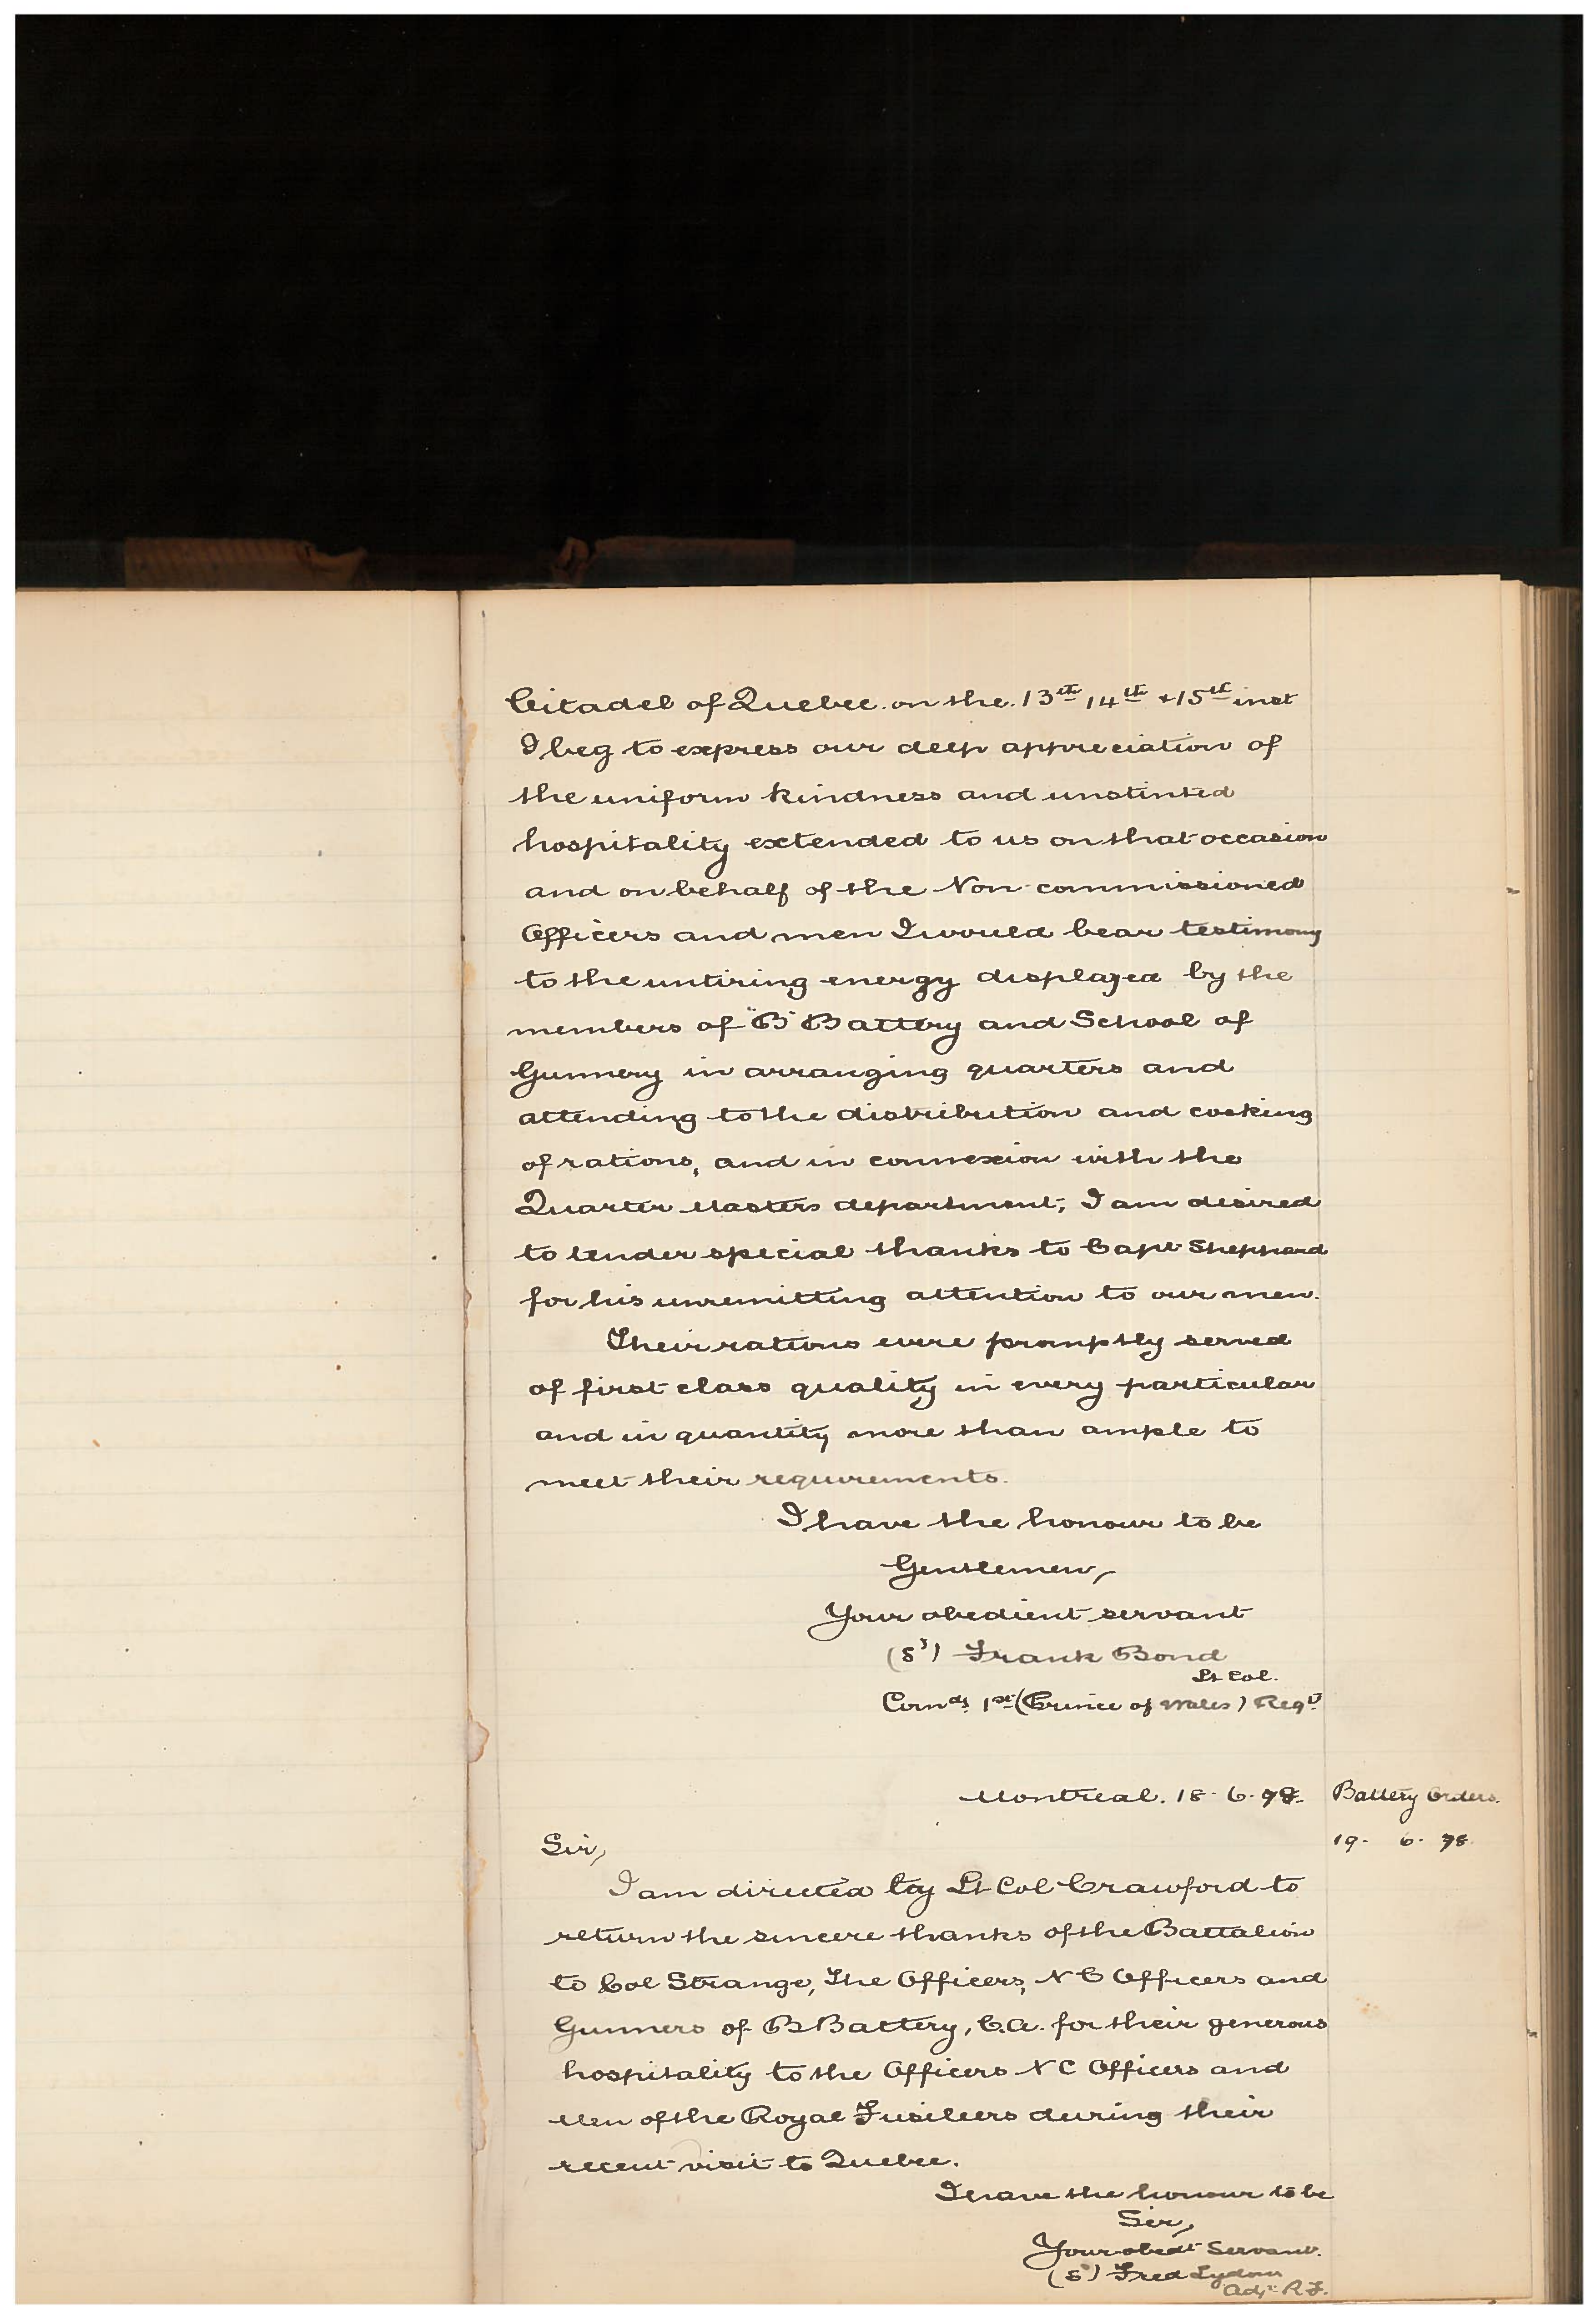 Citadel of Quebec on the 13th 14th + 15th inst
I beg to express our deep appreciation of
the uniform kindness and unstinted
hospitality extended to us on that occasion
and on behalf of the Non-commissioned
Officers and men I would bear testimony
to the untiring energy displayed by the
members of "B" Battery and School of
Gunnery in arranging quarters and
attending to the distribution and cooking
of rations, and in connexion with the
Quarter Masters department; I am desired
to tender special thanks to Capt Sheppard
for his unremitting attention to our men.
Their rations were promptly served
of first class quality in every particular
and in quantity more than ample to
meet their requirements.
I have the honour to be
Gentlemen,
Your obedient servant
(sd) Frank Bond
Lt Col.
Comdg 1st (Prince of Wales) Regt
Montreal. 18-6-78. Battery Orders.
Sir, 19-6-78
I am directed by Lt Col Crawford to
return the sincere thanks of the Battalion
to Col Strange, The Officers, N C Officers and
Gunners of B Battery, C.A. for their generous
hospitality to the Officers N C Officers and
Men of the Royal Fusileers during their
recent visit to Quebec.
I have the honour to be
Sir,
Your obedt Servant.
(sd) Fred Lydon
Adjt R.F.